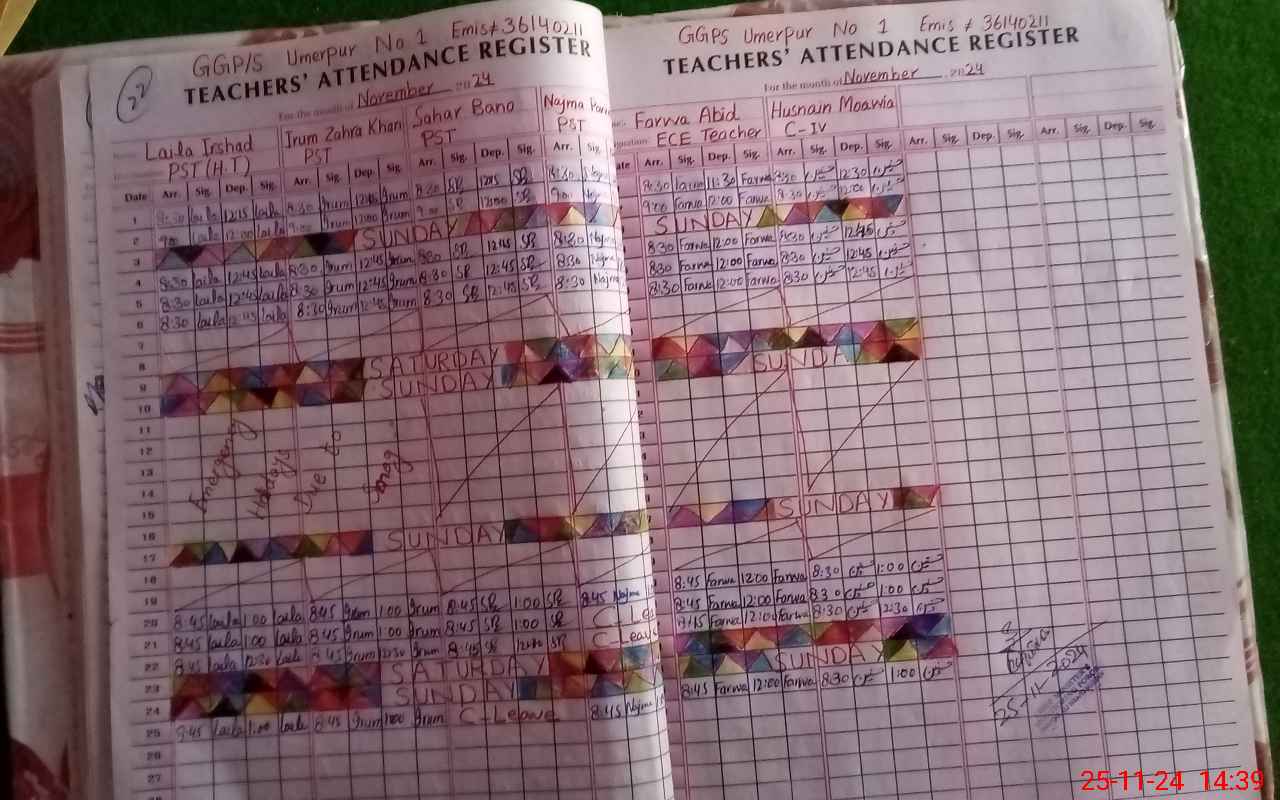 22
GGP/S Umerpur No 1 Emis# 36140211
TEACHERS' ATTENDANCE REGISTER
For the month of November 2024
Laila Irshad Irum Zahra Khan Sahar Bano Najma
PST (H.T) PST PST PST
Date Arr. Sig. Dep. Sig. Arr. Sig. Dep. Sig. Arr. Sig. Dep. Sig. Arr. Sig.
1 8:30 laila 12:15 laila 8:30 Irum 12:15 Irum 8:30 SB 12:15 SB 8:30
2 9:00 laila 12:00 laila 9:00 Irum 12:00 Irum 9:00 SB 12:00 SB 9:00
3 SUNDAY
4 8:30 laila 12:45 laila 8:30 Irum 12:45 Irum 8:30 SB 12:45 SB 8:30 Najma
5 8:30 laila 12:45 laila 8:30 Irum 12:45 Irum 8:30 SB 12:45 SB 8:30 Najma
6 8:30 laila 12:45 laila 8:30 Irum 12:45 Irum 8:30 SB 12:45 SB 8:30 Najma
7
8
9 SATURDAY
10 SUNDAY
11
12
13
14
Emergency Holidays Due to Smog
15
16
17 SUNDAY
18
19
20 8:45 laila 1:00 laila 8:45 Irum 1:00 Irum 8:45 SB 1:00 SB 8:45 Najma
21 8:45 laila 1:00 laila 8:45 Irum 1:00 Irum 8:45 SB 1:00 SB C-Leave
22 8:45 laila 12:30 laila 8:45 Irum 12:30 Irum 8:45 SB 12:30 SB C-Leave
23 SATURDAY
24 SUNDAY
25 8:45 laila 1:00 laila 8:45 Irum 1:00 Irum C-Leave 8:45 Najma
26
27
GGPS Umerpur No 1 Emis # 36140211
TEACHERS' ATTENDANCE REGISTER
For the month of November 2024
Farwa Abid Husnain Moawia
ECE Teacher C-IV
Arr. Sig. Dep. Sig. Arr. Sig. Dep. Sig. Arr. Sig. Dep. Sig. Arr. Sig. Dep. Sig.
8:30 Farwa 11:30 Farwa 8:30 12:30
9:00 Farwa 12:00 Farwa 8:30 12:00
SUNDAY
8:30 Farwa 12:00 Farwa 8:30 12:45
8:30 Farwa 12:00 Farwa 8:30 12:45
8:30 Farwa 12:00 Farwa 8:30 12:45
SUNDA
SUNDAY
8:45 Farwa 12:00 Farwa 8:30 1:00
8:45 Farwa 12:00 Farwa 8:30 1:00
8:45 Farwa 12:00 Farwa 8:30 12:30
SUNDAY
8:45 Farwa 12:00 Farwa 8:30 1:00
25-11-2024
25-11-24 14:39